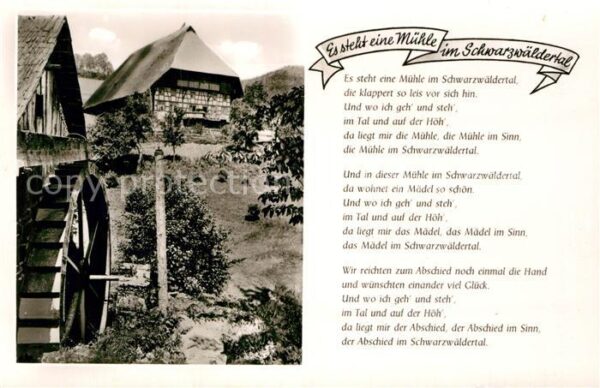 Es steht eine Mühle im Schwarzwäldertal
Es steht eine Mühle im Schwarzwäldertal,
die klappert so leis vor sich hin.
Und wo ich geh' und steh',
im Tal und auf der Höh',
da liegt mir die Mühle, die Mühle im Sinn,
die Mühle im Schwarzwäldertal.
Und in dieser Mühle im Schwarzwäldertal,
da wohnet ein Mädel so schön.
Und wo ich geh' und steh',
im Tal und auf der Höh',
da liegt mir das Mädel, das Mädel im Sinn,
das Mädel im Schwarzwäldertal.
Wir reichten zum Abschied noch einmal die Hand
und wünschten einander viel Glück.
Und wo ich geh' und steh',
im Tal und auf der Höh',
da liegt mir der Abschied, der Abschied im Sinn,
der Abschied im Schwarzwäldertal.
copyprotection